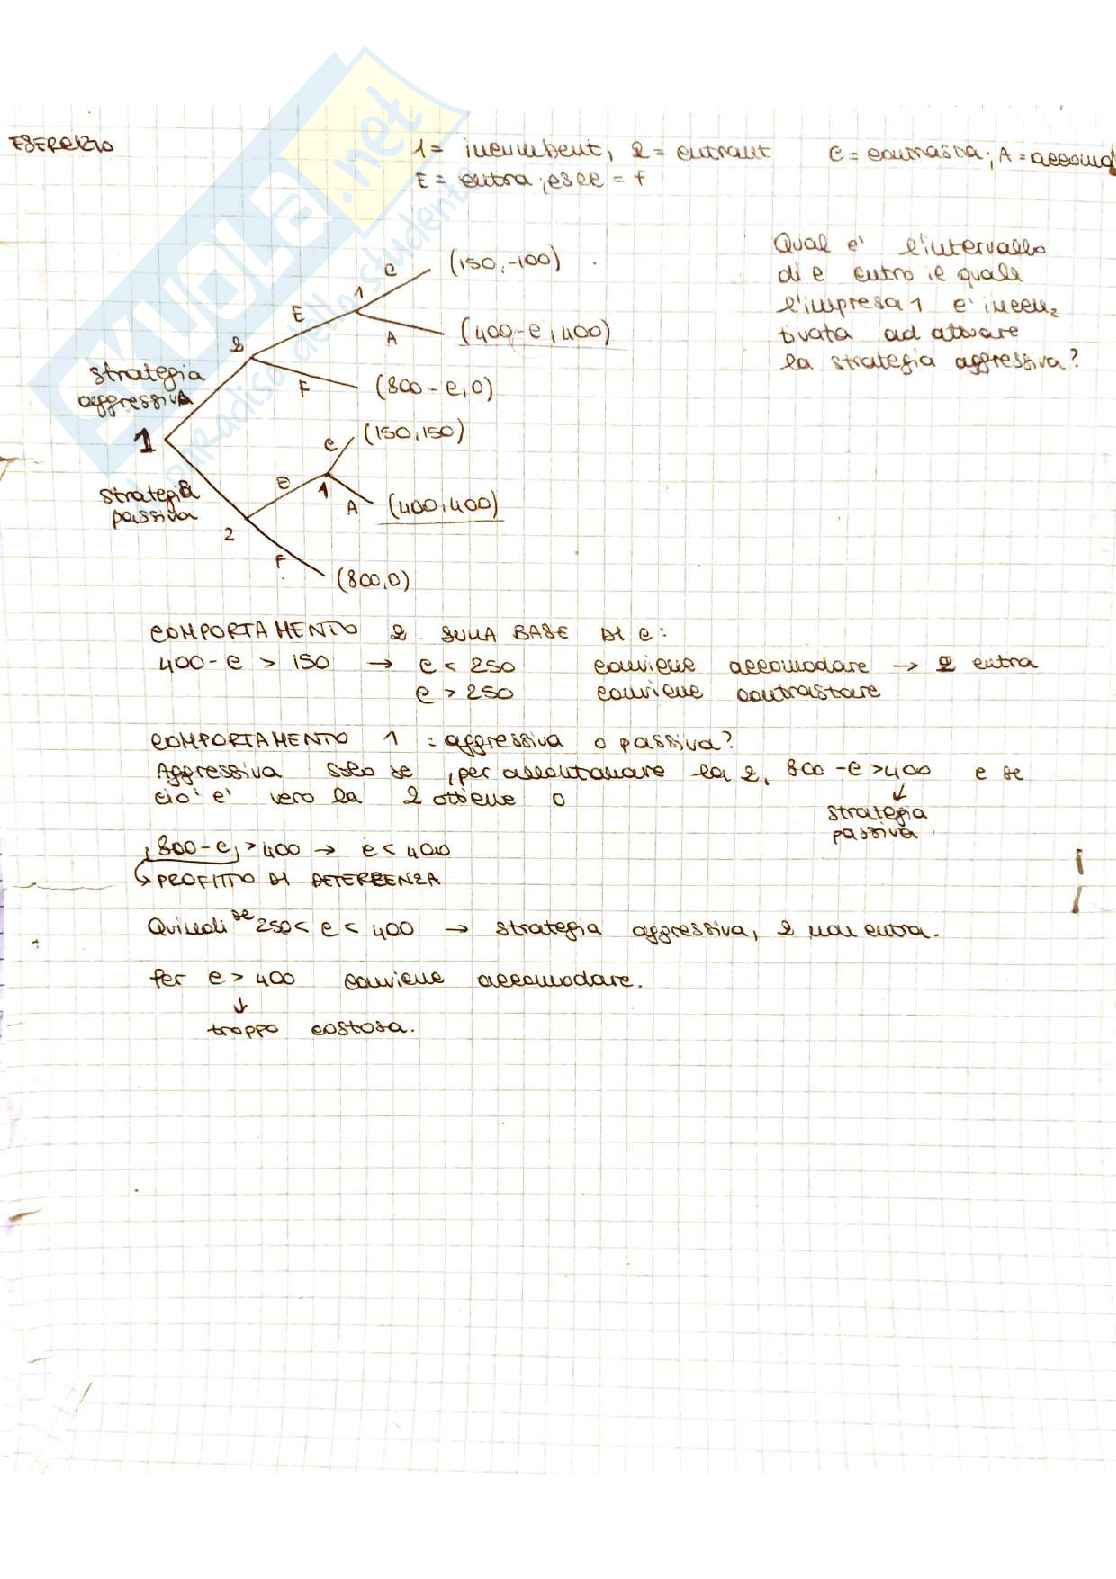 ESERCIZIO
1 = incumbent, 2 = entrant C = contrasta; A = accomod
E = entra; esce = F
Qual e' l'intervallo
di c entro il quale
l'impresa 1 e' incen
tivata ad attuare
la strategia aggressiva?
C (150,-100)
1
E
A (400-c, 400)
2
F (800-c, 0)
strategia
aggressiva
C (150,150)
1
E
1
A (400,400)
strategia
passiva
2
F
(800,0)
COMPORTAMENTO 2 SULLA BASE DI C:
400-c > 150 → c < 250 conviene accomodare → 2 entra
c > 250 conviene contrastare
COMPORTAMENTO 1 : aggressiva o passiva?
Aggressiva solo se, per allontanare la 2, 800-c > 400 e se
cio' e' vero la 2 ottiene 0
strategia
passiva
800-c > 400 → c < 400
↳ PROFITTO DI DETERRENZA
Quindi se 250 < c < 400 → strategia aggressiva, 2 non entra.
Per c > 400 conviene accomodare.
↓
troppo costosa.
SKUOLA.net